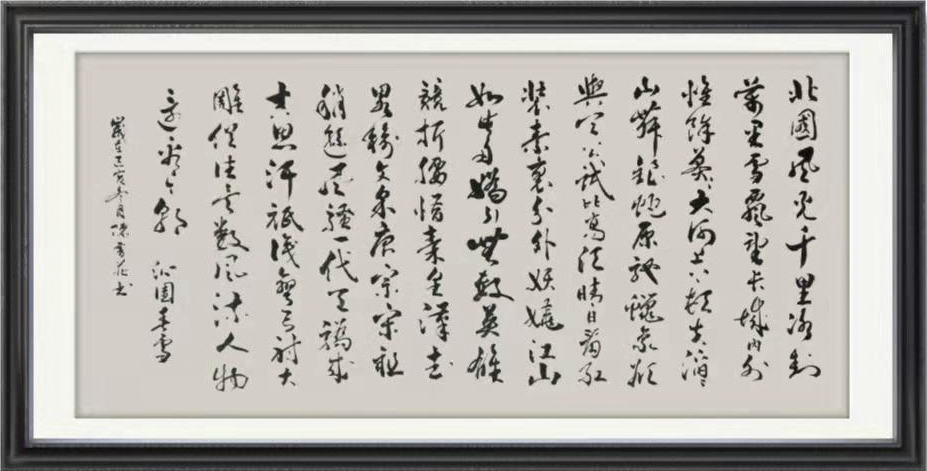 北國風光千里冰封
萬里雪飄望長城內外
惟餘莽〻大河上下頓失滔〻
山舞銀蛇原馳蠟象欲
與天公試比高須晴日看紅
裝素裹分外妖嬈江山
如此多嬌引無數英雄
競折腰惜秦皇漢武
畧輸文采唐宗宋祖
稍遜風騷一代天驕成
吉思汗祇識彎弓射大
雕俱往矣數風流人物
還看今朝 沁園春雪
歲在己亥冬月陳書